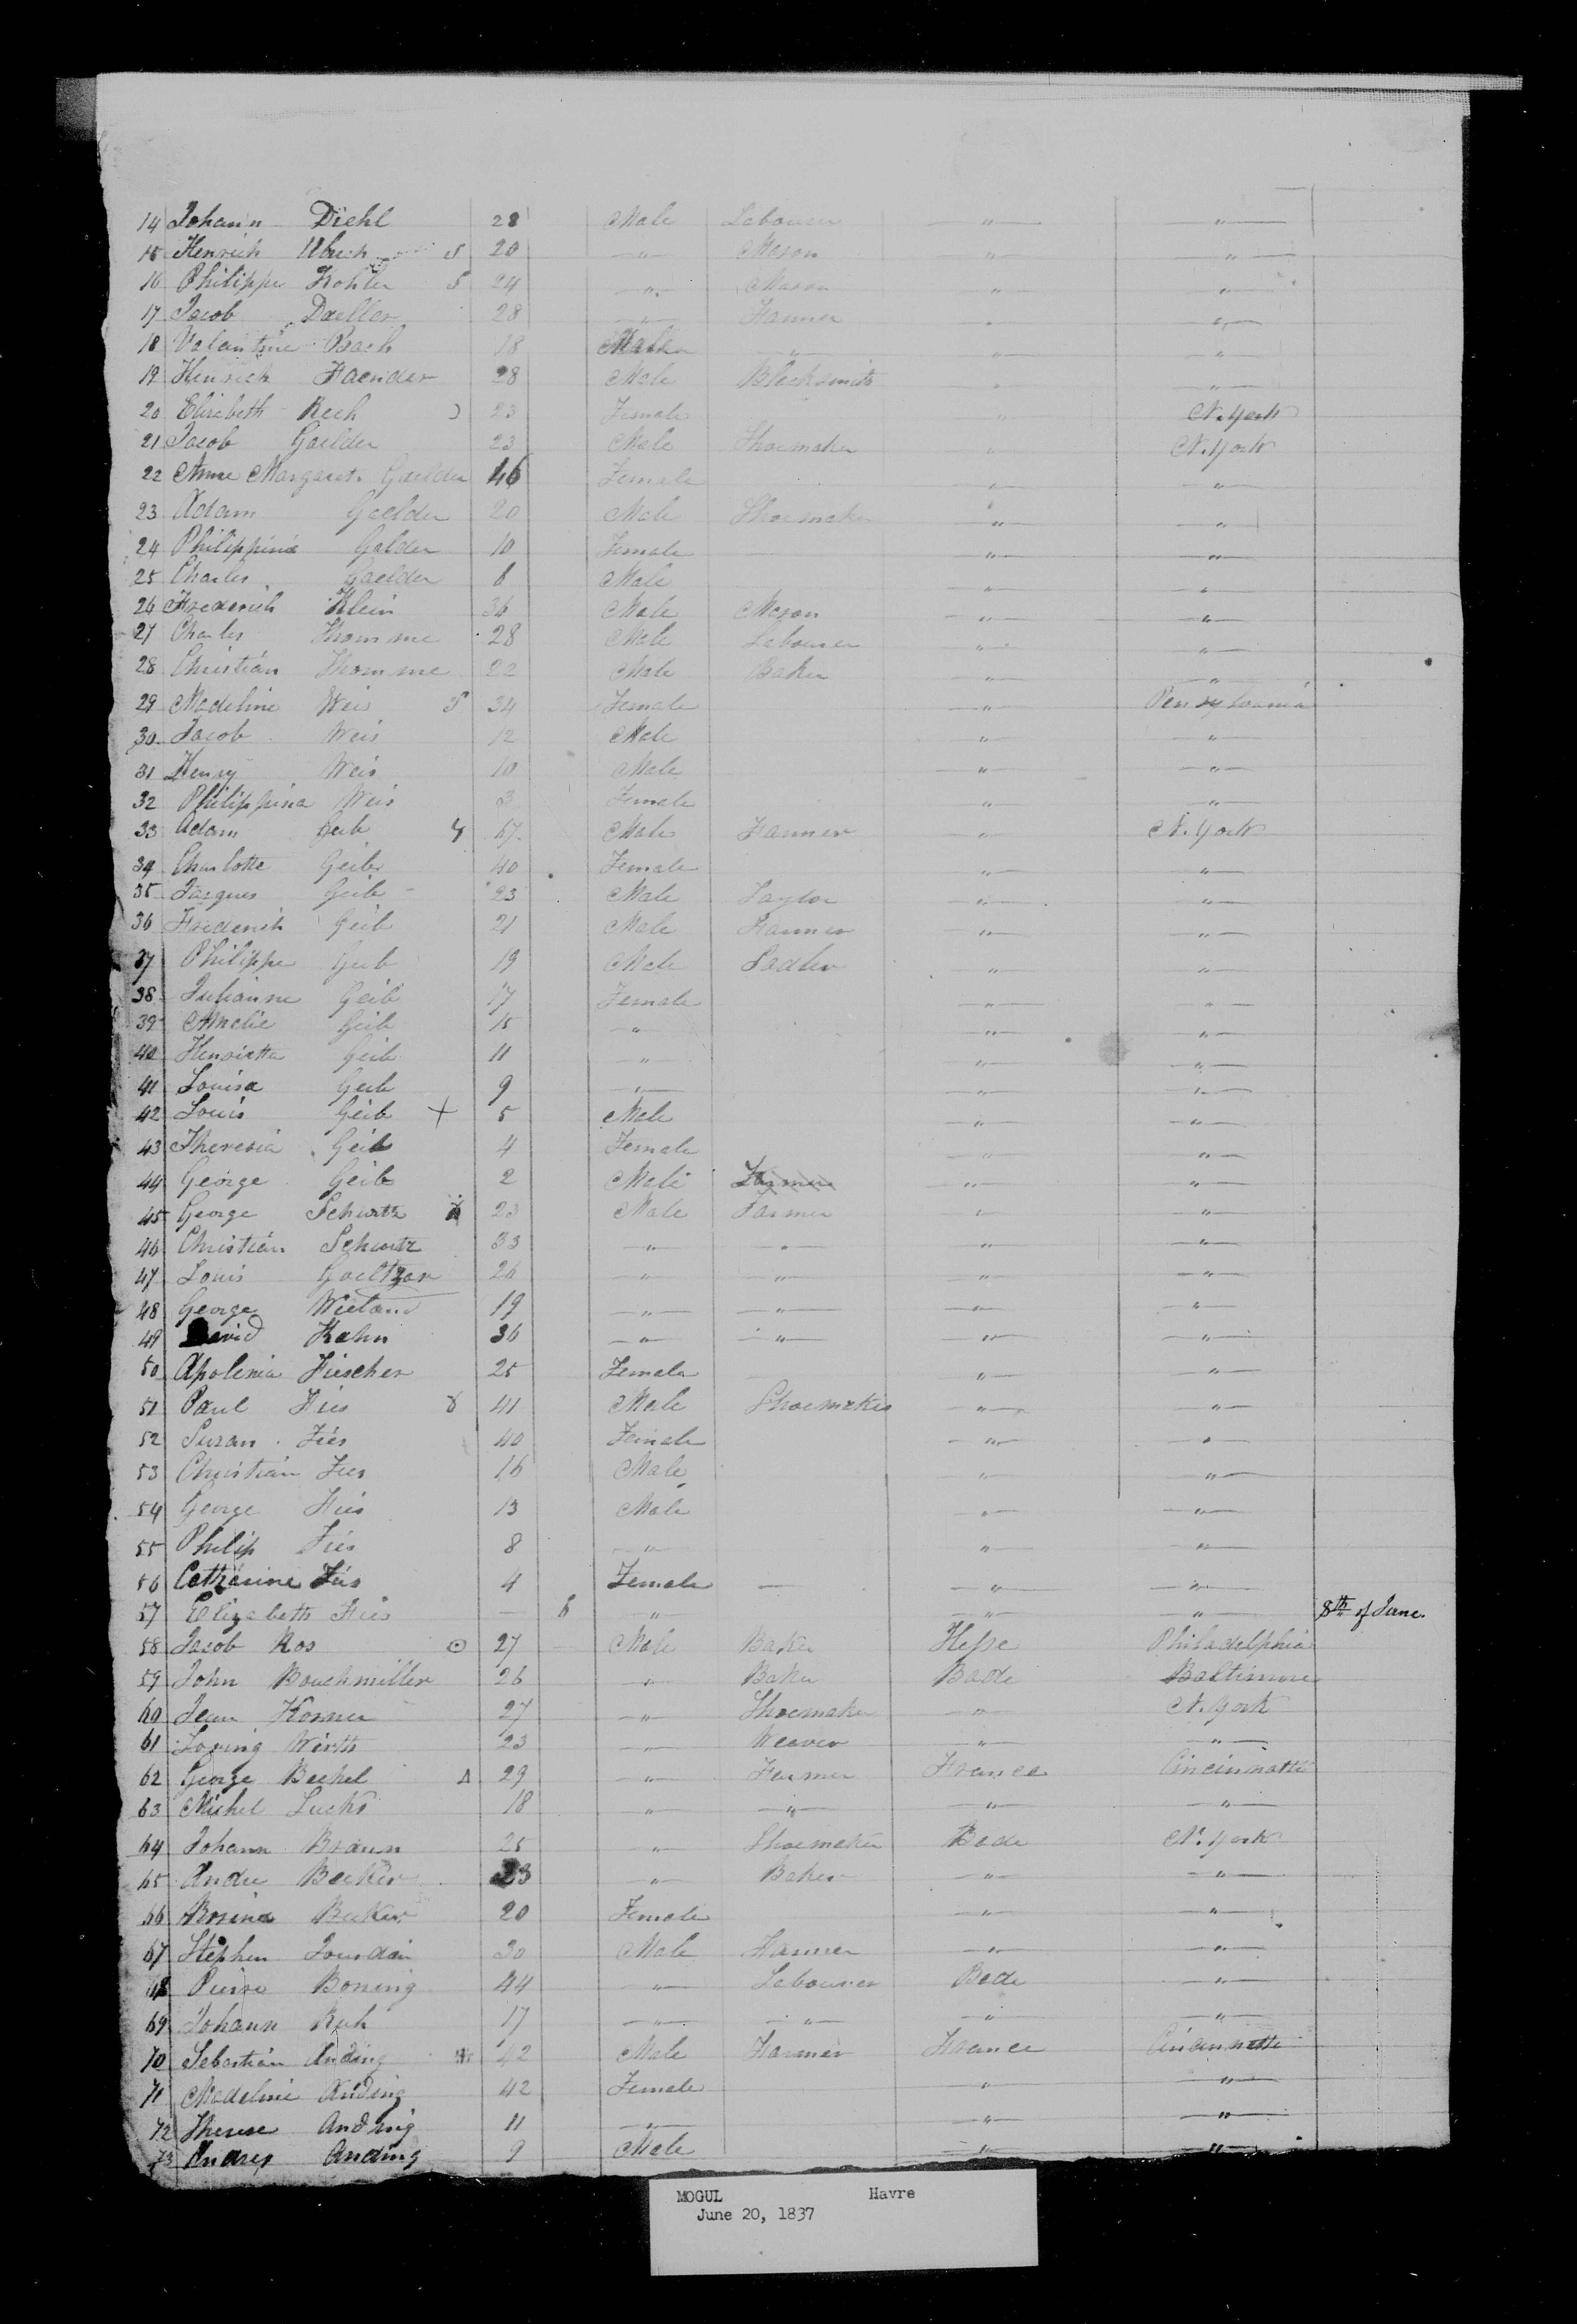 14 Johann Diehl 28 Male Labourer " "
15 Henrich Ulrich 5 20 " Mason " "
16 Philippe Kohler 5 24 " Mason " "
17 Jacob Daeller 28 " Farmer " "
18 Valantine Bach 18 Male " " "
19 Henrich Faender 28 Male Blacksmith " "
20 Elisabeth Rech 23 Female " N. York
21 Jacob Gaelder 23 Male Shoemaker " N. York
22 Anne Margaret. Gaelder 46 Female " "
23 Adam Gaelder 20 Male Shoemaker " "
24 Philippina Galder 10 Female " "
25 Charles Gaelder 6 Male " "
26 Frederich Klein 36 Male Mason " "
27 Charles Thomme 28 Male Labourer " "
28 Christian Thomme 22 Male Baker " "
29 Madeline Weis 5 34 Female " Pensylvania
30 Jacob Weis 12 Male " "
31 Henry Weis 10 Male " "
32 Philippina Weis 3 Female " "
33 Adam Geib 4 67 Male Farmer " N. York
34 Charlotte Geib 40 Female " "
35 Jaques Geib 23 Male Taylor " "
36 Frederich Geib 21 Male Farmer " "
37 Philippe Geib 19 Male Sadler " "
38 Julianne Geib 17 Female " "
39 Amelie Geib 15 " " "
40 Henrietta Geib 11 " " "
41 Louisa Geib 9 " " "
42 Louis Geib + 5 Male " "
43 Theresia Geib 4 Female " "
44 George Geib 2 Male Farmer " "
45 George Schwartz 23 Male Farmer " "
46 Christian Schwartz 33 " " " "
47 Louis Goeltzer 26 " " " "
48 George Wieland 19 " " " "
49 David Kahn 36 " " " "
50 Apolenia Fischer 25 Female " "
51 Paul Fies 8 41 Male Shoemaker " "
52 Susan Fies 40 Female " "
53 Christian Fies 16 Male " "
54 George Fies 13 Male " "
55 Philip Fies 8 " " "
56 Catharine Fies 4 Female — " "
57 Elizabeth Fies — 6 " " " 8th of June.
58 Jacob Ros ⊙ 27 Male Baker Hesse Philadelphia
59 John Bouchmiller 26 " Baker Bade Baltimore
60 Jean Korner 27 " Shoemaker " N. York
61 Wirth 23 " Weaver " "
62 George Bechel Δ 29 " Farmer France Cincinnatti
63 Michel Lucks 18 " " " "
64 Johann Braun 25 " Shoemaker Bade N. York
65 Andre Becker 23 " Baker " "
66 Rosina Becker 20 Female " "
67 Stephen Jourdain 30 Male Farmer " "
68 Pierre Boning 44 " Labourer Bade "
69 Johann Ruh 17 " " " "
70 Sebastian Anding 42 Male Farmer France Cincinnatti
71 Madeline Anding 42 Female " "
72 Therese Anding 11 " " "
73 Andres Anding 9 Male " "
MOGUL Havre
June 20, 1837